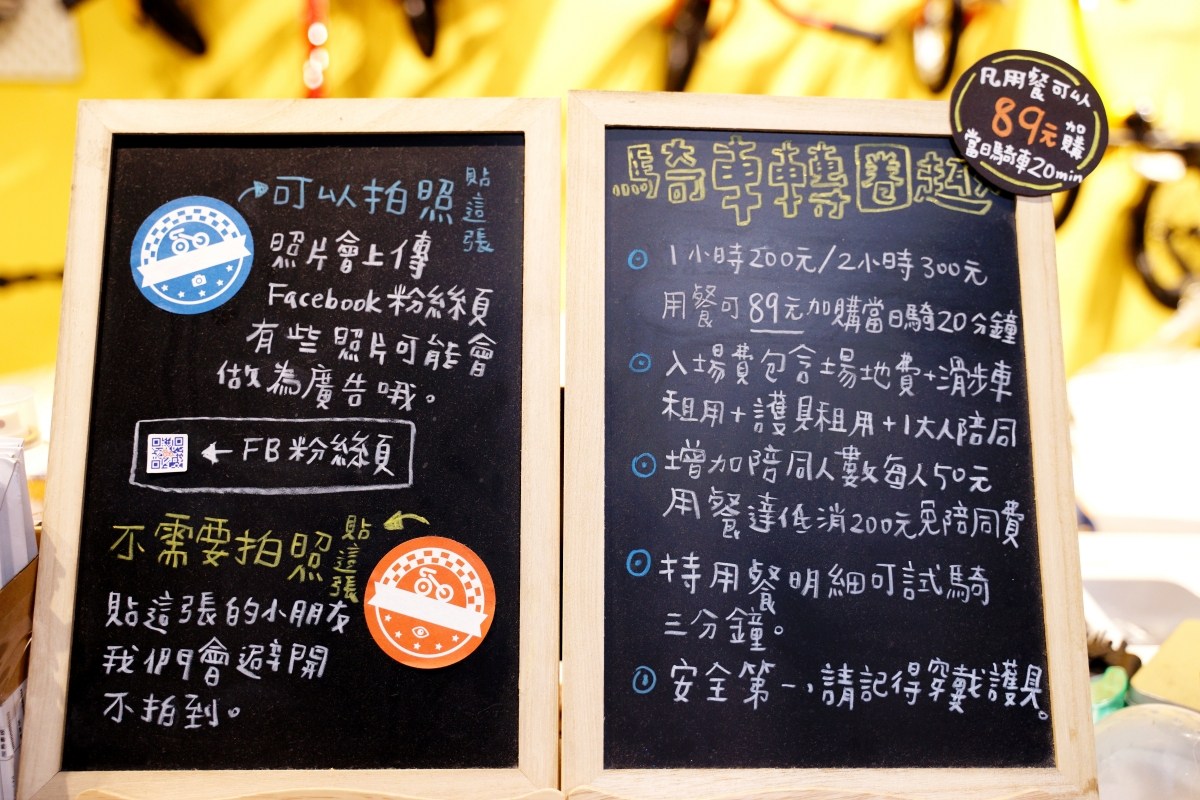 可以拍照 貼這張
照片會上傳
Facebook粉絲頁
有些照片可能會
做為廣告哦。
← FB粉絲頁
不需要拍照 貼這張
貼這張的小朋友
我們會避開
不拍到。
凡用餐可以
89元加購
當日騎車20min
騎車轉圈趣
1小時200元/2小時300元
用餐可89元加購當日騎20分鐘
入場費包含場地費+滑步車
租用+護具租用+1大人陪同
增加陪同人數每人50元
用餐達低消200元免陪同費
持用餐明細可試騎
三分鐘。
安全第一,請記得穿戴護具。